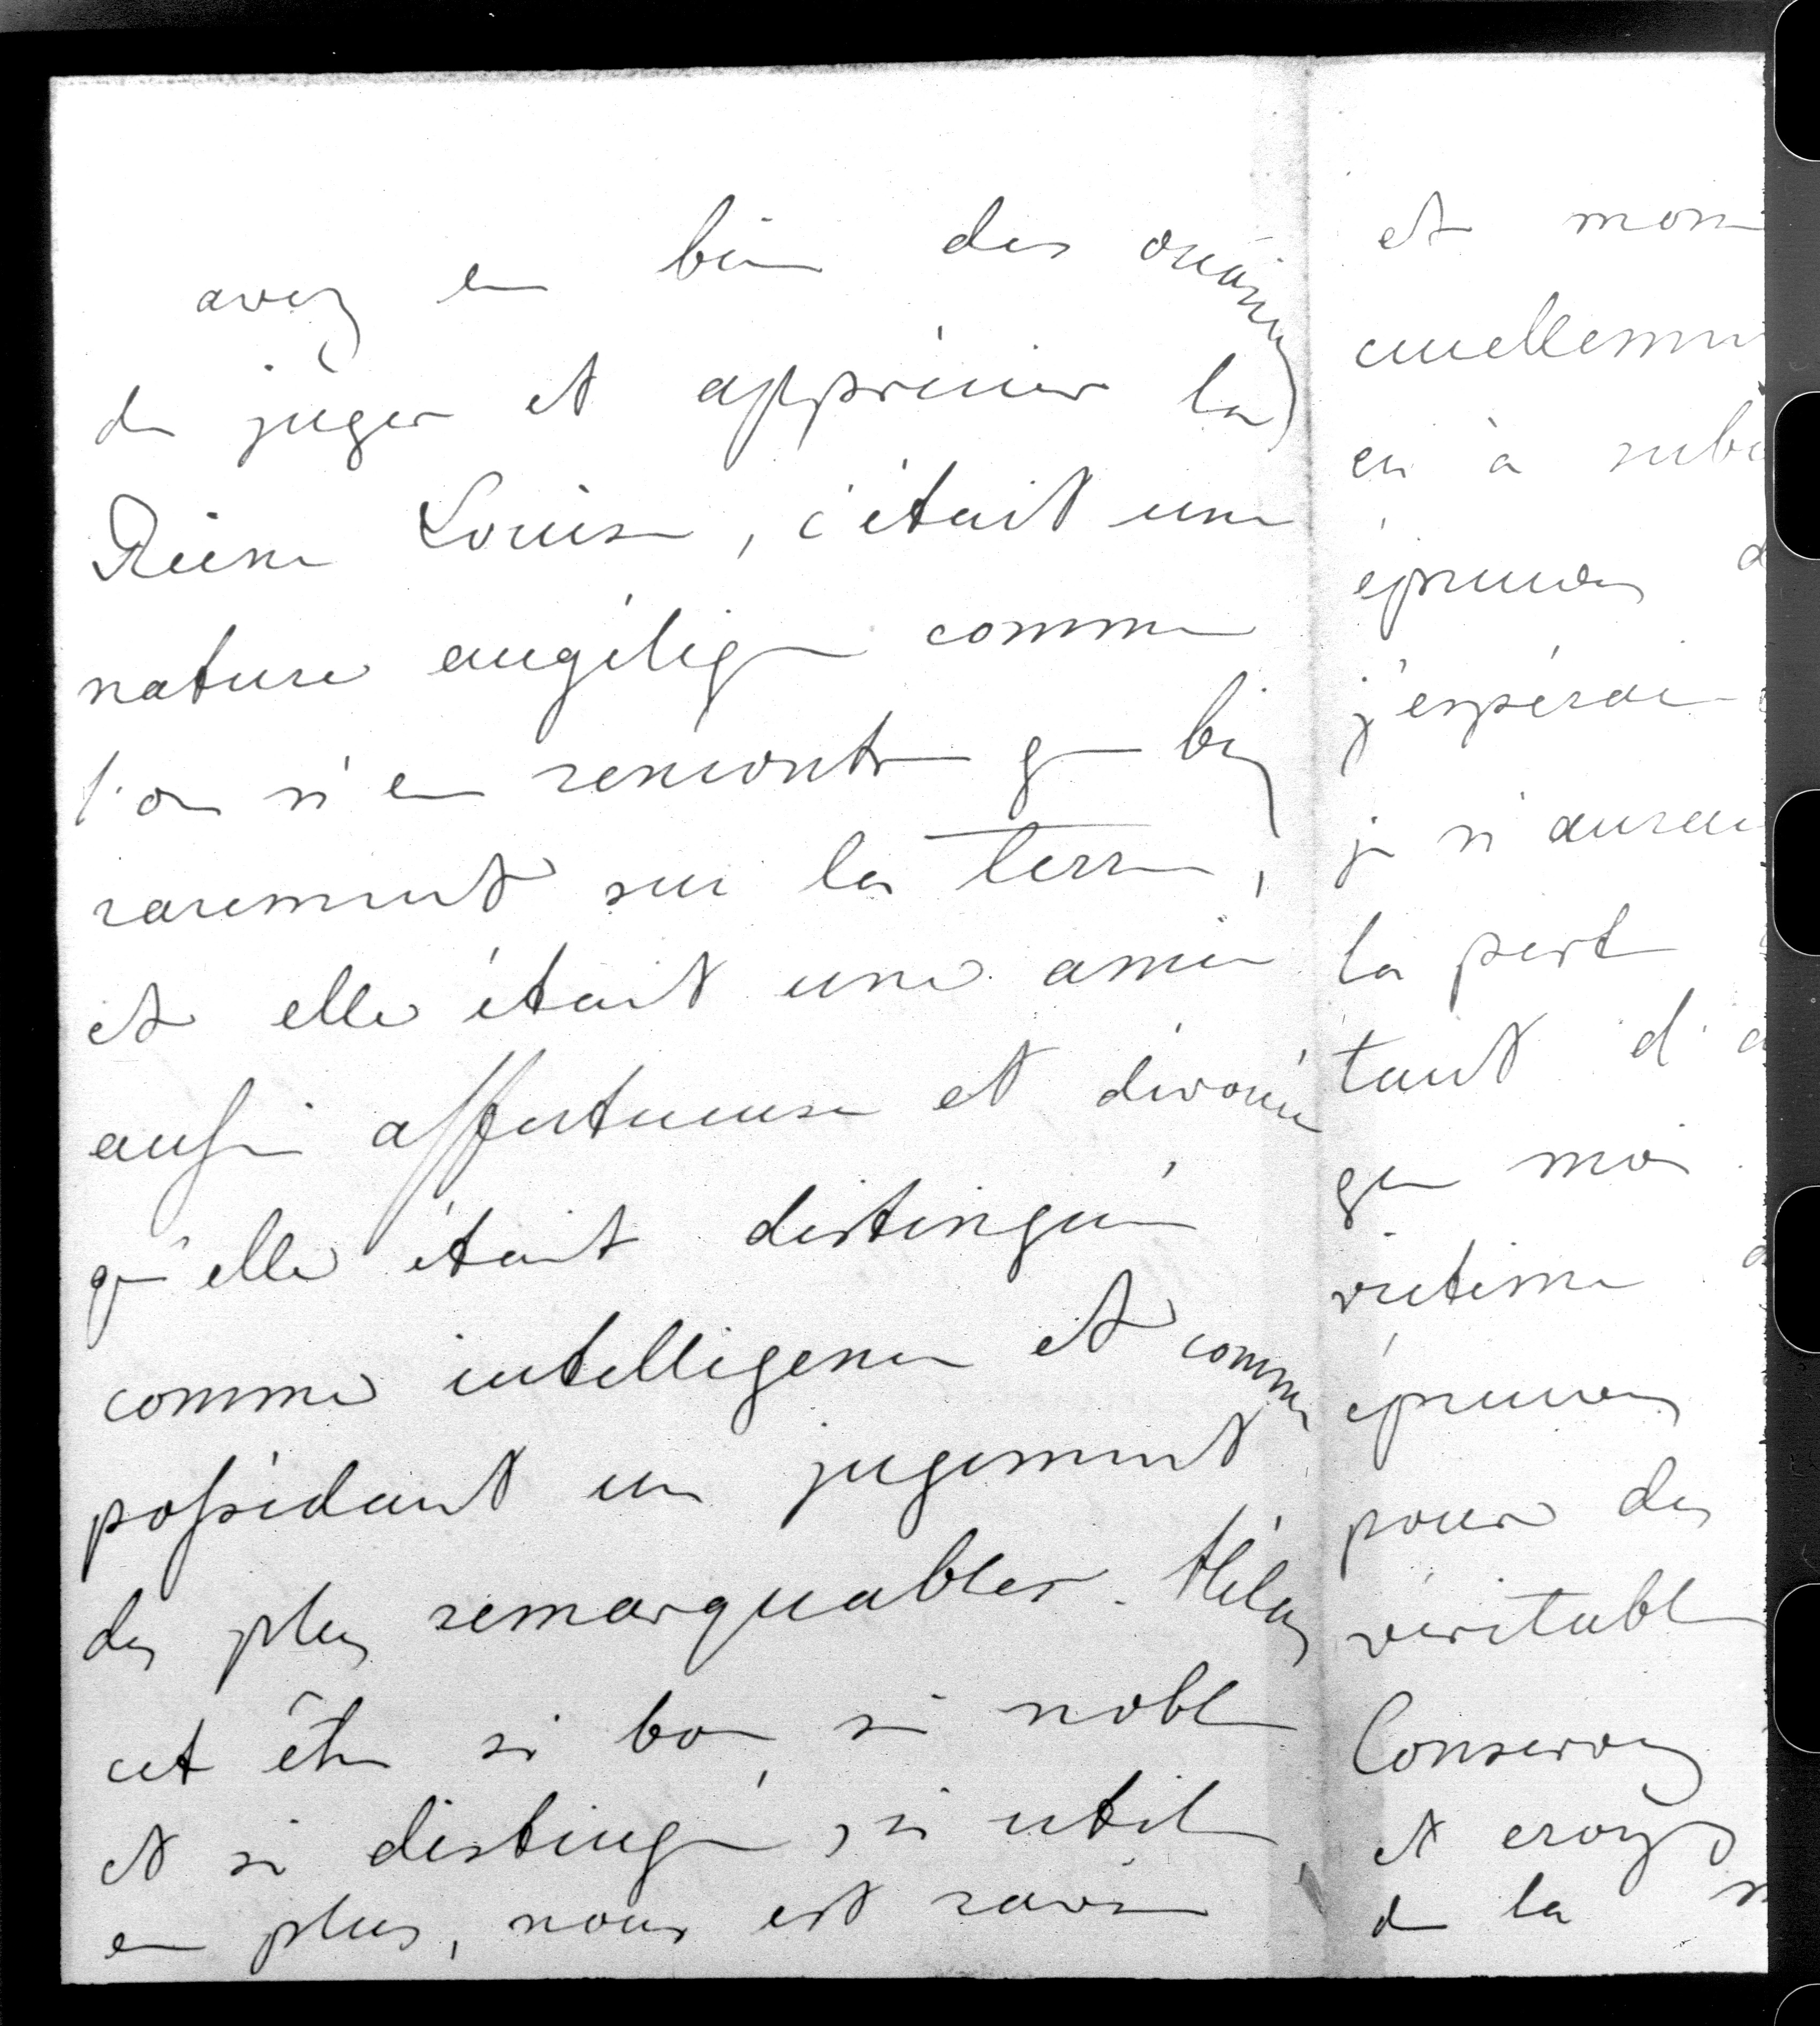 avez eu bien des occasions
de juger et apprécier la
Reine Louise, c'était une
nature angélique comme
l'on n'en rencontre que bien
rarement sur la terre,
et elle était une amie
aussi affectueuse et dévouée
qu'elle était distinguée
comme intelligence et comme
possédant un jugement
des plus remarquables. Hélas
cet être si bon, si noble
et si distingué, si utile
en plus, nous est ravi
et mon
cruellement
eu à subi
épreuves d
j'espérai
je n'aurai
la perte
tant d'a
que moi
victime
épreuves
pour des
véritable
Conservez
et croyez
de la